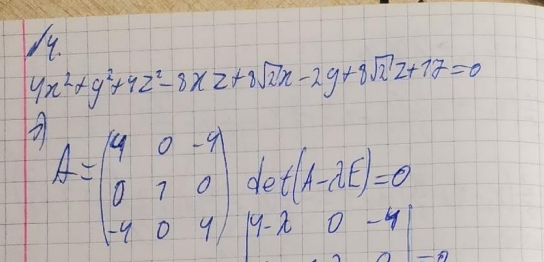 №4.
4x²+y²+4z²-8xz+8√2x-2y+8√2z+17=0
1)
A = (4 0 -4
0 1 0
-4 0 4) det(A-λE)=0
|4-λ 0 -4|
=0